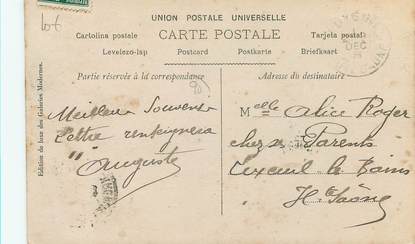 lot
UNION POSTALE UNIVERSELLE
CARTE POSTALE
Cartolina postale
Tarjeta postal
Levelezo-lap
Postcard
Postkarte
Briefkaart
Partie réservée à la correspondance
Adresse du destinataire
Edition de luxe des Galeries Modernes.
DEC
Meilleur Souvenir
Lettre renseignera
Auguste
Melle Alice Roger
chez ses Parents
Luxeuil les Bains
Hte Saône